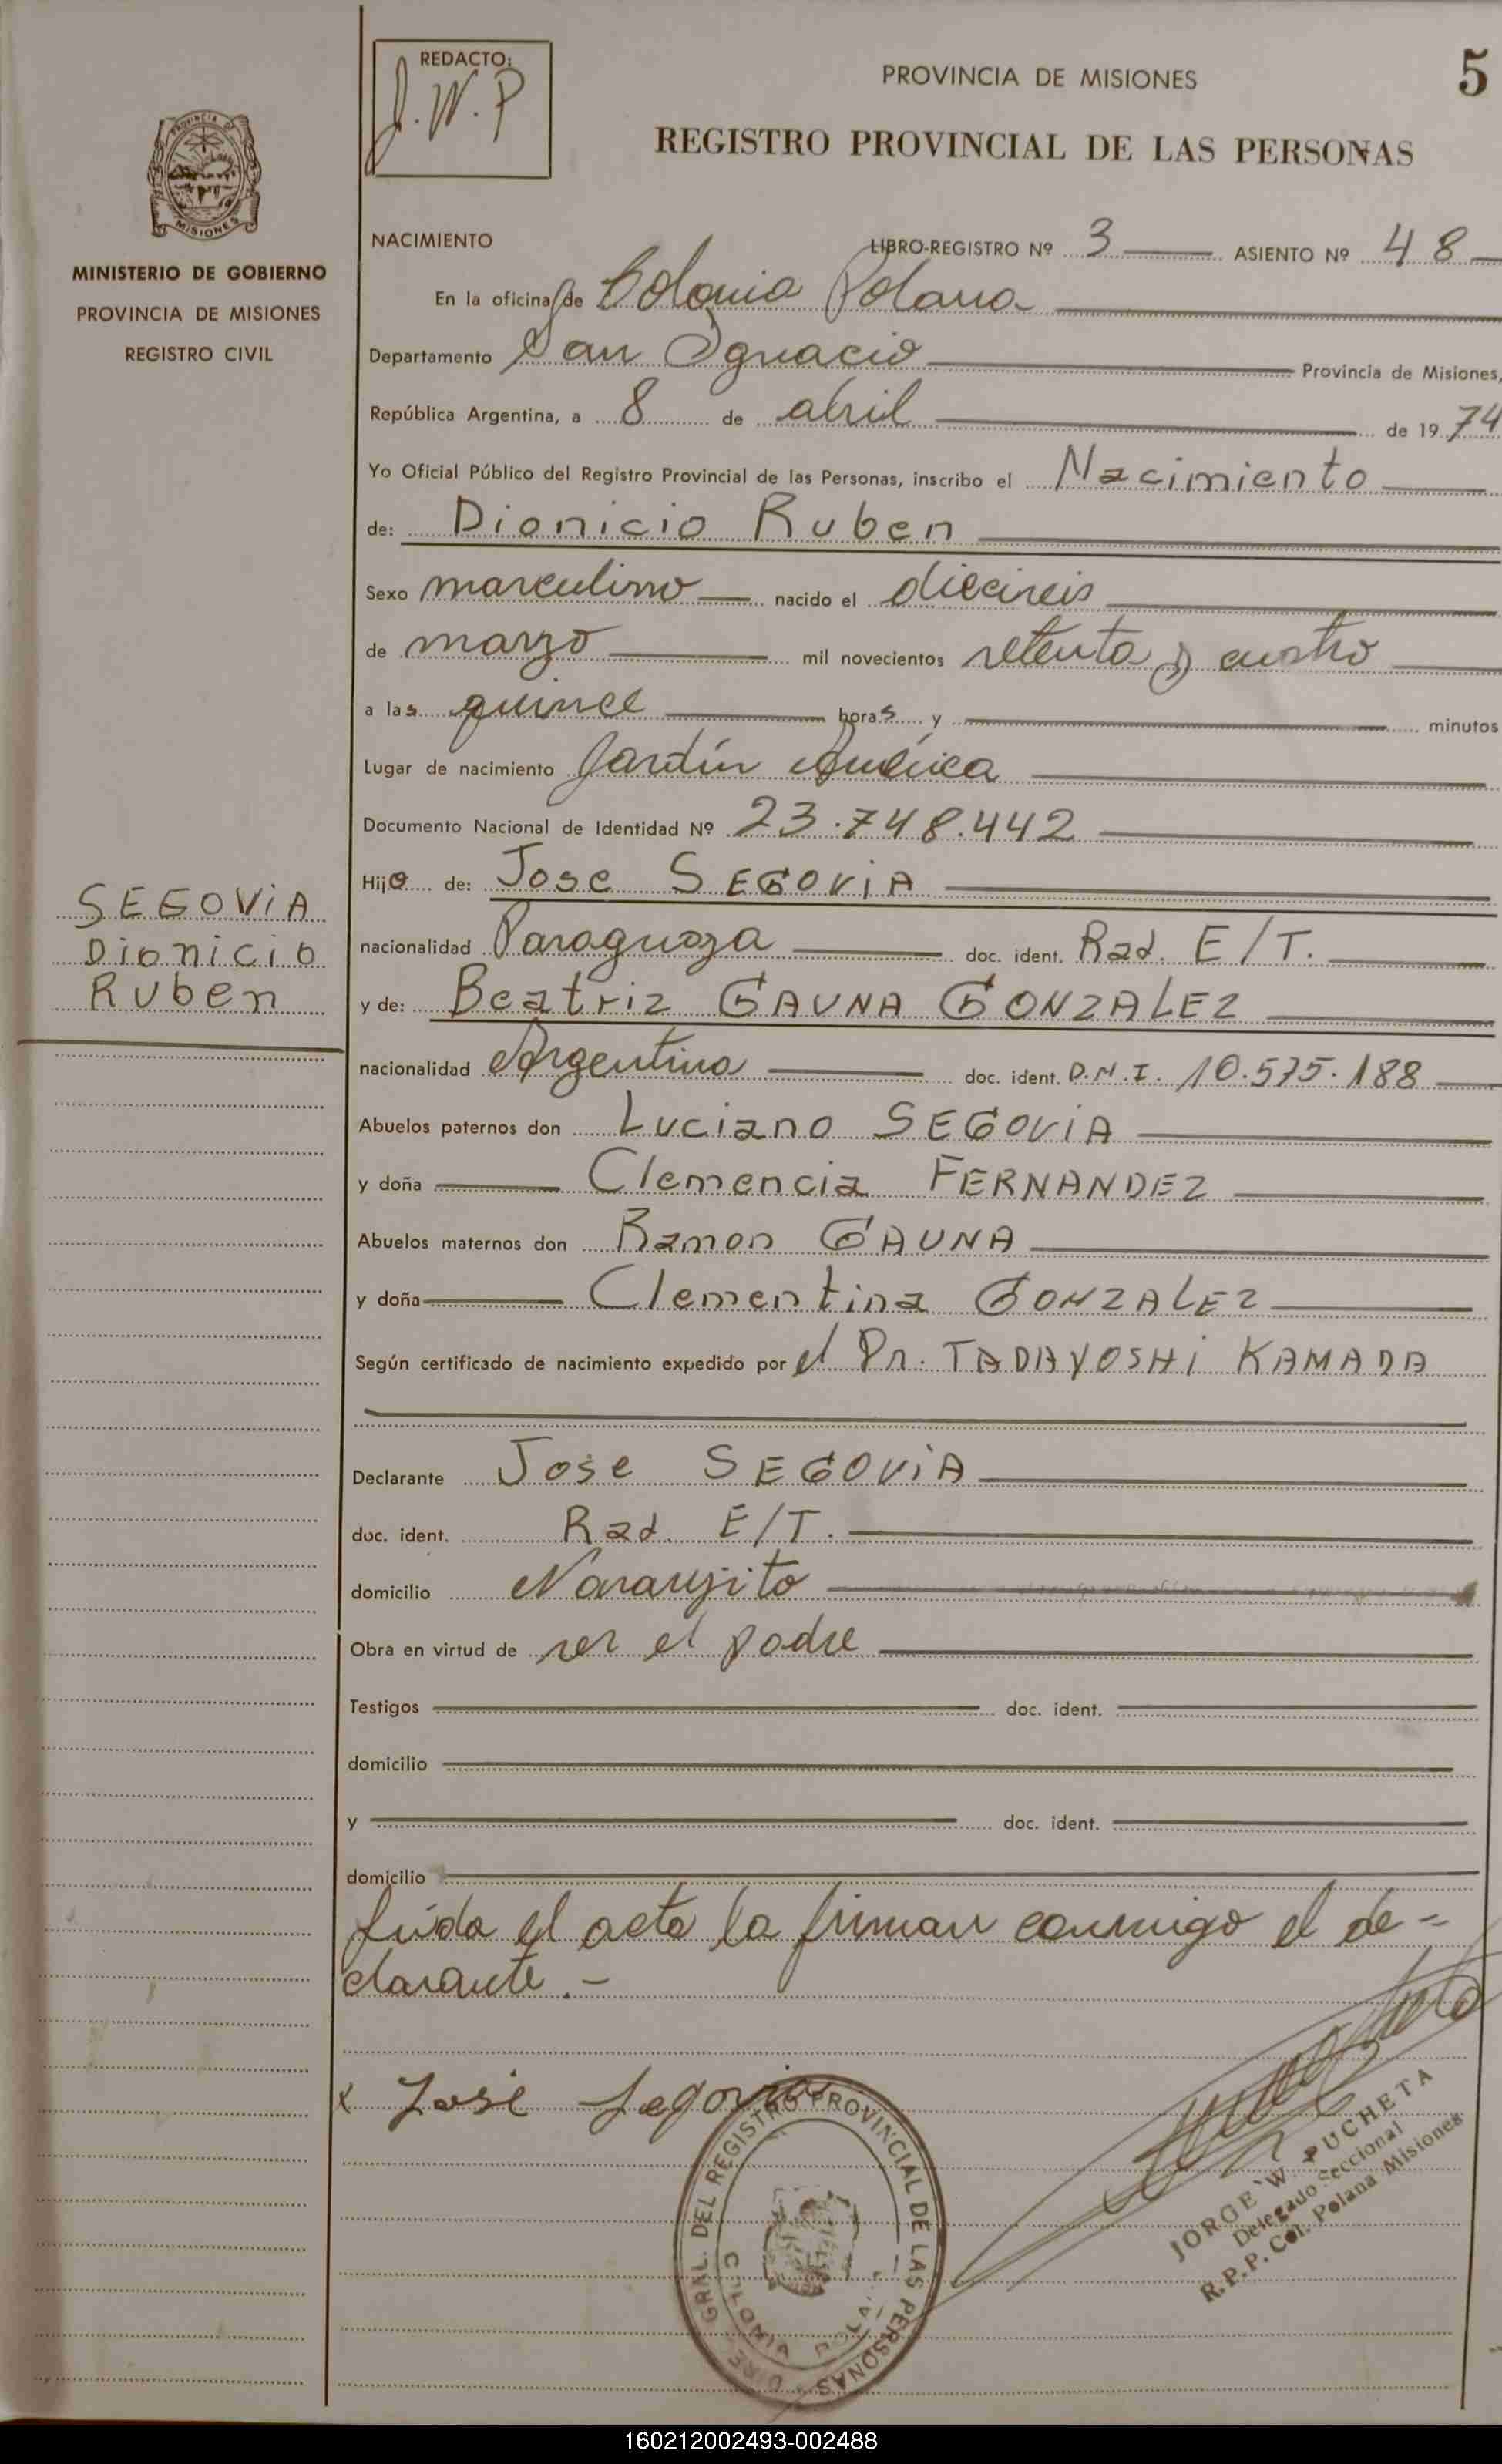 REDACTO:
J.W.P
PROVINCIA DE MISIONES
5
REGISTRO PROVINCIAL DE LAS PERSONAS
PROVINCIA DE
MISIONES
MINISTERIO DE GOBIERNO
PROVINCIA DE MISIONES
REGISTRO CIVIL
NACIMIENTO LIBRO-REGISTRO Nº 3 ASIENTO Nº 48
En la oficina de Colonia Polana
Departamento San Ignacio Provincia de Misiones,
República Argentina, a 8 de abril de 1974
Yo Oficial Público del Registro Provincial de las Personas, inscribo el Nacimiento
de: Dionicio Ruben
Sexo masculino nacido el dieciseis
de marzo mil novecientos setenta y cuatro
a las quince horas y minutos
Lugar de nacimiento Jardín América
Documento Nacional de Identidad Nº 23.748.442
Hijo de: Jose SEGOViA
SEGOViA
Dionicio
Ruben
nacionalidad Paraguaya doc. ident. Rad. E/T.
y de: Beatriz GAUNA GONZALEZ
nacionalidad Argentina doc. ident. D.N.I. 10.575.188
Abuelos paternos don Luciano SEGOViA
y doña Clemencia FERNANDEZ
Abuelos maternos don Ramon GAUNA
y doña Clementina GONZALEZ
Según certificado de nacimiento expedido por el Dr. TADAYOSHi KAMADA
Declarante Jose SEGOViA
doc. ident. Rad. E/T.
domicilio Naranjito
Obra en virtud de ser el padre
Testigos doc. ident.
domicilio
y doc. ident.
domicilio
Leída el acta la firman conmigo el de=
clarante.-
x José Segovia
DIRE. GRAL. DEL REGISTRO PROVINCIAL DE LAS PERSONAS
JORGE W. PUCHETA
Delegado Seccional
R.P.P. Col. Polana Misiones
160212002493-002488